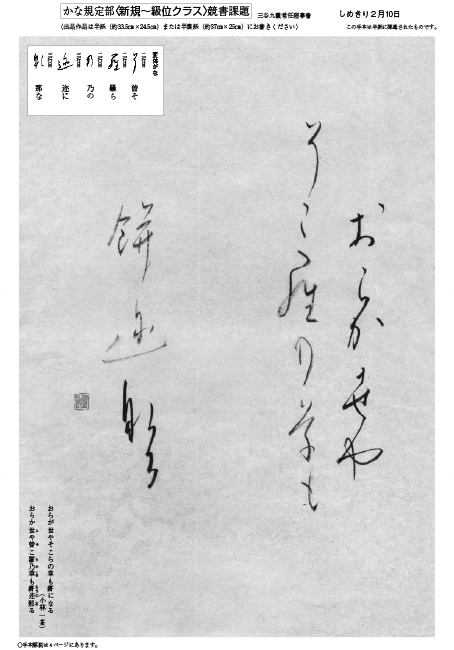 かな規定部〈新規～級位クラス〉競書課題
三谷九嶺常任理事書
しめきり2月10日
(出品作品は半紙(約33.5cm×24.5cm)または半懐紙(約37cm×25cm)にお書きください)
この手本は半紙に揮毫されたものです。
変体がな
曽そ
羅ら
乃の
迩に
那な
おらか世や
曽こ羅乃草も
餅迩那る
おらが世やそこらの草も餅になる
(小林一茶)
おらか世や曽こ羅乃草も餅迩那る
○手本解説は4ページにあります。